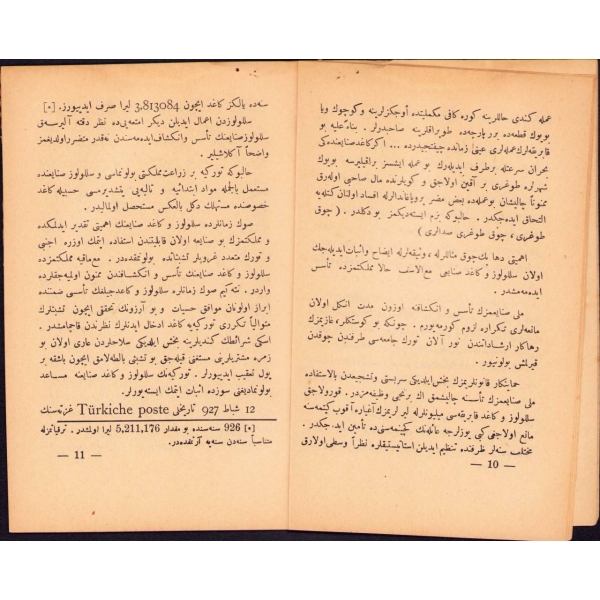 عمله کندی حاللرینه کوره کافی مکملیتده أوجکزلرینه وکوچوك ویا
بویوك قطعه‌ده برر پارچه‌ده طوپراقلرینه صاحبدرلر . بناءً علیه بو
فابریقه‌لرك عمله‌لری عینی زمانده چیفتجیدرده ... اکر کاغد صنایعنده‌کی
بحران سرعتله برطرف ایدیلمزك بو عمله ایشسز براقیلیرسه بویوك
شهرلره طوغری بر آقین اولاجق و کویلرنده مال صاحبی اوله‌رق
ممنوناً چالیشان بوعمله‌ده بعض مضر پروپاغاندالرله افساد اولنان کتله‌یه
التحاق ایده‌جکدر . حالبوکه بزم ایسته‌دیکمز بو دکلدر . ( چوق
طوغری ، چوق طوغری صدالری )
اهمیتی دها پك‌چوق مثاللرله ، وثیقه‌لرله ایضاح واثبات ایدیله‌جك
اولان سللولوز و کاغد صنایعی مع‌الاسف حالا مملکتمزده تأسس
ایده‌مه‌مشدر .
ملی صنایعمزك تأسس و انکشافنه اوزون مدت انکل اولان
مانعه‌لری تکراره لزوم کورمه‌یورم . چونکه بو کوستکلر ، غازیمزك
رهاکار ارشاداتندن نور آلان تورك جامعه‌سی طرفندن چوقدن
قیرلمش بولونیور .
حمایتکار قانونلریمزك بخش ایلدیکی سربستی وتشجیعدن بالاستفاده
ملی صنایعمزك تأسسنه چالیشمق اك برنجی وظیفه‌مزدر . قوریلاجق
سللولوز و کاغد فابریقه‌سی میلیونلرله لیرا لریمزك أغیاره آقوب کیتمه‌سنه
مانع اولاجغی کبی یوزلرجه عائله‌نك کچینمه‌سنی ده تأمین ایده‌جکدر .
مختلف سنه‌لر ظرفنده تنظیم ایدیلن استاتیستیقلره نظراً وسطی اولارق
— 10 —
سنه‌ده یالکز کاغد ایچون 3,813084 لیرا صرف ایدییورز . [•]
سللولوزدن اعمال ایدیلن دیکر امتعه‌یی‌ده نظر دقته آلیرسه‌ق
سللولوز صنایعنك تأسس وانکشاف ایده‌مه‌سندن نه‌قدر متضرر اولدیغمز
واضحاً آکلاشیلیر .
حالبوکه تورکیه بر زراعت مملکتی بولونماسی و سللولوز صنایعنده
مستعمل بالجمله مواد ابتدائیه و تالیه‌یی یتشدیرمسی حسبیله کاغد
خصوصنده مستهلك دکل بالعکس مستحصل اولمالیدر .
صوك زمانلرده سللولوز و کاغد صنایعنك اهمیتی تقدیر ایدلمکده
و مملکتمزك بو صنایعه اولان قابلیتندن استفاده ایتمك اوزره اجنبی
و تورك متعدد غروپلر تشبثاتده بولونمقده‌در . مع‌مافیه مملکتمزده
سللولوز و کاغد صنایعنك تأسس و انکشافندن ممنون اولمیه‌جقلرده
واردر . نته‌کیم صوك زمانلرده سللولوز و کاغدجیلغك تأسسی ضمننده
ابراز اولونان موافق حسیات و بو آرزونك تحققی ایچون تشبثلرك
متوالیاً تکرری تورکیه‌یه کاغد ادخال ایدنلرك نظرندن قاچمامشدر .
اسکی شرائطك کندیلرینه بخش ایلدیکی سلاحلردن عاری اولان بو
زمره مشتریلرینی مستغنی قیله‌جق بو تشبثی بالطه‌لامق ایچون باشقه بر
یول تعقیب ایدییورلر . تورکیه‌نك سللولوز و کاغد صنایعنه مساعد
بولونمادیغنی سوزده اثبات ایتمك ایسته‌یورلر .
12 شباط 927 تاریخلی Türkiche poste غزته‌سنك
[•] 926 سنه‌سنده بو مقدار 5,211,176 لیرا اولمشدر . ترقیاتمزله
متناسباً سنه‌دن سنه‌یه آرتمقده‌در .
— 11 —